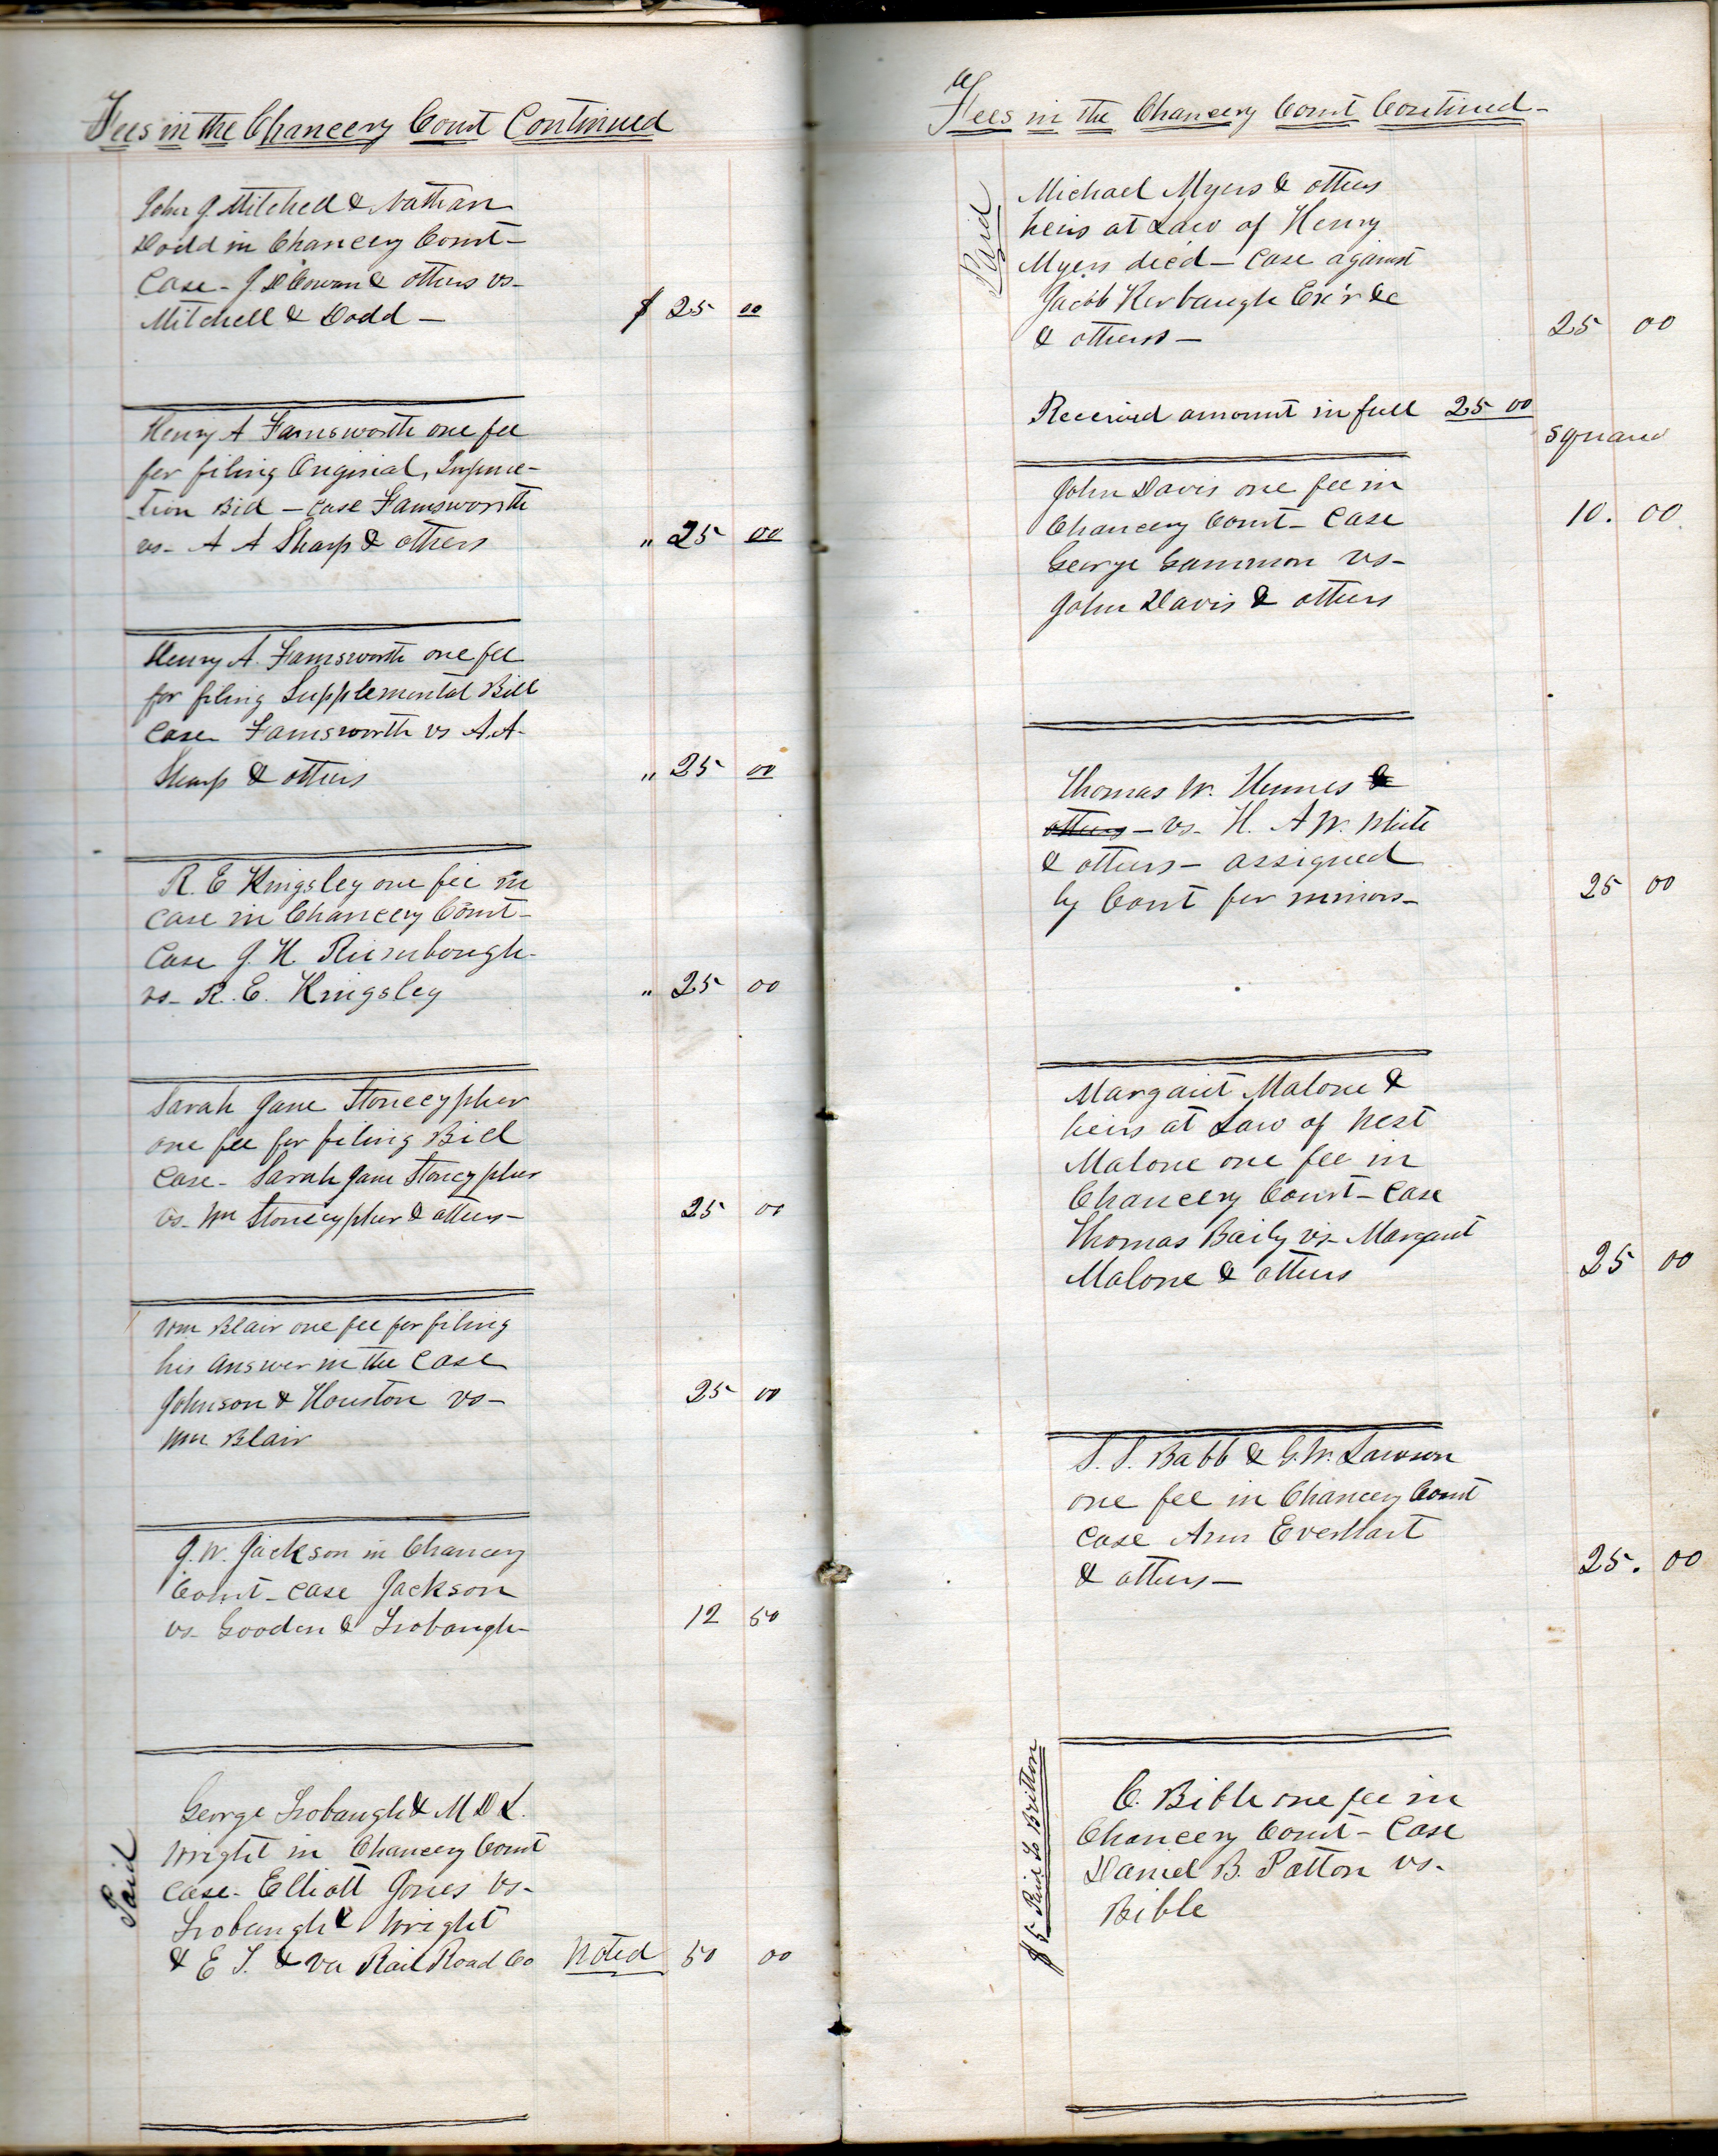 Fees in the Chancery Court Continued
John G Mitchell & Nathan
Dodd in Chancery Court –
Case – J. D. Cowan & others vs –
Mitchell & Dodd – $ 25 00
Henry A Farnsworth one fee
for filing Original, Injunc-
tion Bill – Case Farnsworth
vs – A A Sharp & others " 25 00
Henry A. Farnsworth one fee
for filing Supplemental Bill
Case Farnsworth vs A. A.
Sharp & others " 25 00
R. E Kingsley one fee in
case in Chancery Court –
Case J. H. Rumbough
vs – R. E. Kingsley " 25 00
Sarah Jane Stonecypher
one fee for filing Bill
Case – Sarah Jane Stonecypher
vs – Wm Stonecypher & others – 25 00
Wm Blair one fee for filing
his answer in the Case
Johnson & Houston vs – 25 00
Wm Blair
J. W. Jackson in Chancery
Court – case Jackson
vs – Gooden & Trobaugh – 12 50
Paid
George Trobaugh & M D L.
Wright in Chancery Court
case – Elliott Jones vs –
Trobaugh & Wright
& E T. & Va Rail Road Co Noted 50 00
Fees in the Chancery Court Continued –
Paid
Michael Myers & others
heirs at Law of Henry
Myers dec'd – Case against
Jacob Kerbaugh Ex'r &c
& others – 25 00
Received amount in full 25 00
squared
John Davis one fee in
Chancery Court – Case 10. 00
George Gammon vs –
John Davis & others
Thomas W. Humes &
others – vs – H. A W. White
& others – assigned
by Court for minors – 25 00
Margaret Malone &
heirs at Law of West
Malone one fee in
Chancery Court – Case
Thomas Baily vs – Margaret
Malone & others 25 00
S. S. Babb & G. W. Lawson
one fee in Chancery Court
case Ann Everhart
& others – 25. 00
$5 Paid to Britton
C. Bible one fee in
Chancery Court – Case
Daniel B. Patton vs –
Bible